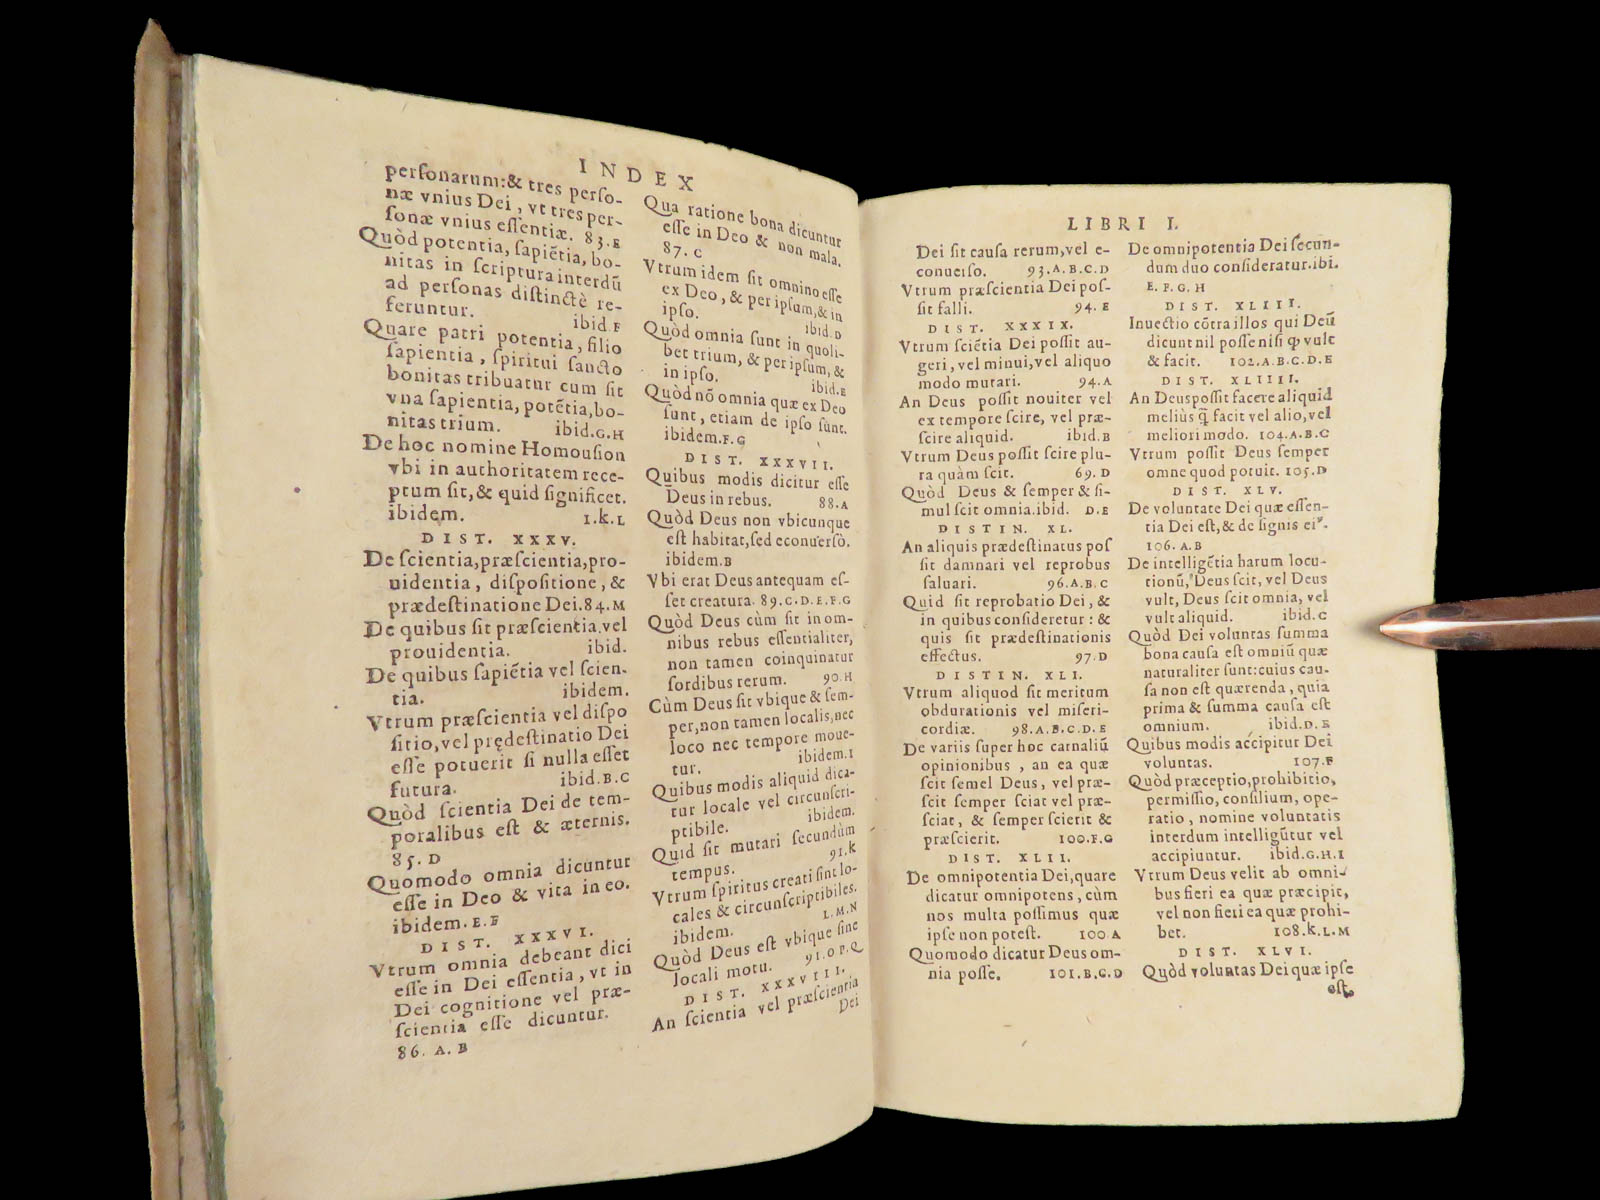 INDEX
perſonarum:& tres perſo-
næ vnius Dei, vt tres per-
ſonæ vnius eſſentiæ. 83.E
Quòd potentia, ſapiẽtia, bo-
nitas in ſcriptura interdũ
ad perſonas diſtinctè re-
feruntur. ibid.F
Quare patri potentia, filio
ſapientia, ſpiritui ſancto
bonitas tribuatur cum ſit
vna ſapientia, potẽtia, bo-
nitas trium. ibid.G.H
De hoc nomine Homouſion
vbi in authoritatem rece-
ptum ſit, & quid ſignificet.
ibidem. I.K.L
DIST. XXXV.
De ſcientia, præſcientia, pro-
uidentia, diſpoſitione, &
prædeſtinatione Dei. 84.M
De quibus ſit præſcientia, vel
prouidentia. ibid.
De quibus ſapiẽtia vel ſcien-
tia. ibidem.
Vtrum præſcientia vel diſpo
ſitio, vel prędeſtinatio Dei
eſſe potuerit ſi nulla eſſet
futura. ibid.B.C
Quòd ſcientia Dei de tem-
poralibus eſt & æternis.
85.D
Quomodo omnia dicuntur
eſſe in Deo & vita in eo.
ibidem.E.F
DIST. XXXVI.
Vtrum omnia debeant dici
eſſe in Dei eſſentia, vt in
Dei cognitione vel præ-
ſcientia eſſe dicuntur.
86. A. B
Qua ratione bona dicuntur
eſſe in Deo & non mala.
87. C
Vtrum idem ſit omnino eſſe
ex Deo, & per ipſum, & in
ipſo. ibid.D
Quòd omnia ſunt in quoli-
bet trium, & per ipſum, &
in ipſo. ibid.E
Quòd nõ omnia quæ ex Deo
ſunt, etiam de ipſo ſunt.
ibidem.F.G
DIST. XXXVII.
Quibus modis dicitur eſſe
Deus in rebus. 88.A
Quòd Deus non vbicunque
eſt habitat, ſed econuerſò.
ibidem.B
Vbi erat Deus antequam eſ-
ſet creatura. 89.C.D.E.F.G
Quòd Deus cùm ſit in om-
nibus rebus eſſentialiter,
non tamen coinquinatur
ſordibus rerum. 90.H
Cùm Deus ſit vbique & ſem-
per, non tamen localis, nec
loco nec tempore moue-
tur. ibidem.I
Quibus modis aliquid dica-
tur locale vel circunſcri-
ptibile. ibidem.
Quid ſit mutari ſecundùm
tempus. 91.K
Vtrum ſpiritus creati ſint lo-
cales & circunſcriptibiles.
ibidem. L.M.N
Quòd Deus eſt vbique ſine
locali motu. 91.O P.Q
DIST. XXXVIII.
An ſcientia vel præſcientia
Dei
LIBRI I.
Dei ſit cauſa rerum, vel e-
conuerſo. 93.A.B.C.D
Vtrum præſcientia Dei poſ-
ſit falli. 94.E
DIST. XXXIX.
Vtrum ſciẽtia Dei poſſit au-
geri, vel minui, vel aliquo
modo mutari. 94.A
An Deus poſſit nouiter vel
ex tempore ſcire, vel præ-
ſcire aliquid. ibid.B
Vtrum Deus poſſit ſcire plu-
ra quàm ſcit. 69.D
Quòd Deus & ſemper & ſi-
mul ſcit omnia. ibid. D.E
DISTIN. XL.
An aliquis prædeſtinatus poſ
ſit damnari vel reprobus
ſaluari. 96.A.B.C
Quid ſit reprobatio Dei, &
in quibus conſideretur: &
quis ſit prædeſtinationis
effectus. 97.D
DISTIN. XLI.
Vtrum aliquod ſit meritum
obdurationis vel miſeri-
cordiæ. 98.A.B.C.D.E
De variis ſuper hoc carnaliũ
opinionibus, an ea quæ
ſcit ſemel Deus, vel præ-
ſcit ſemper ſciat vel præ-
ſciat, & ſemper ſcierit &
præſcierit. 100.F.G
DIST. XLII.
De omnipotentia Dei, quare
dicatur omnipotens, cùm
nos multa poſſimus quæ
ipſe non poteſt. 100 A
Quomodo dicatur Deus om-
nia poſſe. 101.B.C.D
De omnipotentia Dei ſecun-
dum duo conſideratur. ibi.
E.F.G.H
DIST. XLIII.
Inuectio cõtra illos qui Deũ
dicunt nil poſſe niſi ꝙ vult
& facit. 102.A.B.C.D.E
DIST. XLIIII.
An Deus poſſit facere aliquid
meliùs q̃ facit vel alio, vel
meliori modo. 104.A.B.C
Vtrum poſſit Deus ſemper
omne quod potuit. 105.D
DIST. XLV.
De voluntate Dei quæ eſſen-
tia Dei eſt, & de ſignis eiꝰ.
106. A.B
De intelligẽtia harum locu-
tionũ, Deus ſcit, vel Deus
vult, Deus ſcit omnia, vel
vult aliquid. ibid.C
Quòd Dei voluntas ſumma
bona cauſa eſt omniũ quæ
naturaliter ſunt: cuius cau-
ſa non eſt quærenda, quia
prima & ſumma cauſa eſt
omnium. ibid.D.E
Quibus modis accipitur Dei
voluntas. 107.F
Quòd præceptio, prohibitio,
permiſſio, conſilium, ope-
ratio, nomine voluntatis
interdum intelligũtur vel
accipiuntur. ibid.G.H.I
Vtrum Deus velit ab omni-
bus fieri ea quæ præcipit,
vel non fieri ea quæ prohi-
bet. 108.K.L.M
DIST. XLVI.
Quòd voluntas Dei quæ ipſe
eſt,